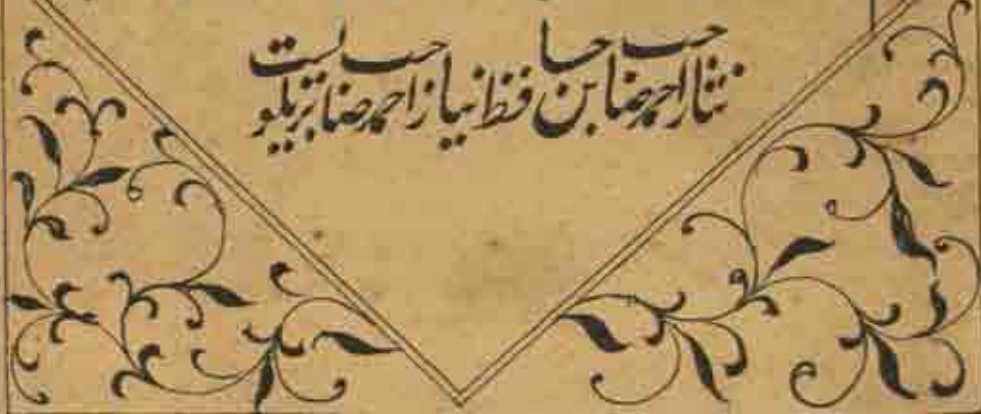 نثار احمد صاحب بن حافظ نیاز احمد صاحب بریلویست